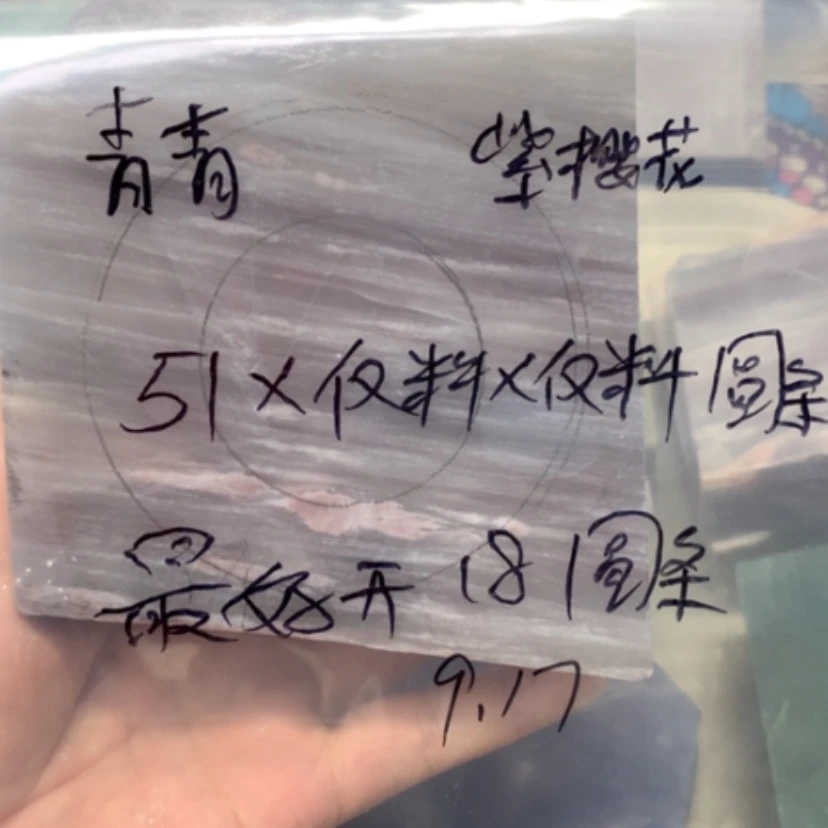 青青 紫樱花
51×仅料×仅料圆条
最好开18圆条
9.17